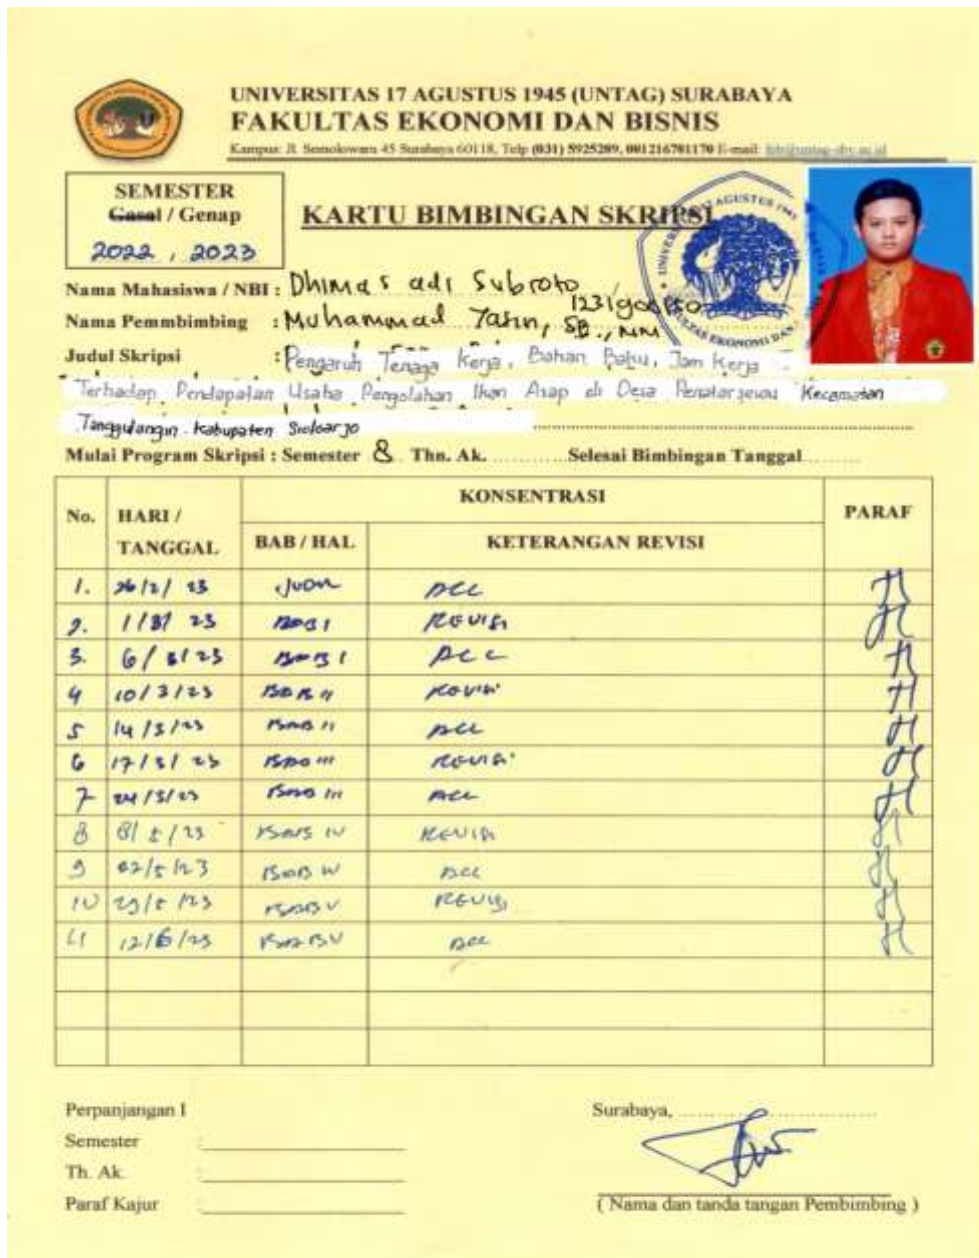 UNIVERSITAS 17 AGUSTUS 1945 (UNTAG) SURABAYA
FAKULTAS EKONOMI DAN BISNIS
Kampus: Jl. Semolowaru 45 Surabaya 60118, Telp (031) 5925289, 081216781170 E-mail:
SEMESTER
Gasal / Genap
2022, 2023
KARTU BIMBINGAN SKRIPSI
Nama Mahasiswa / NBI : Dhimas adi Subroto
Nama Pemmbimbing : Muhammad Yasin, SE., MM
Judul Skripsi : Pengaruh Tenaga Kerja, Bahan Baku, Jam Kerja
Terhadap Pendapatan Usaha Pengolahan Ikan Asap di Desa Penatarsewu Kecamatan
Tanggulangin Kabupaten Sidoarjo
Mulai Program Skripsi : Semester 8 Thn. Ak. ............Selesai Bimbingan Tanggal..........
No. HARI / TANGGAL KONSENTRASI PARAF
BAB / HAL KETERANGAN REVISI
1. ACC
2. BAB I REVISI
3. BAB I ACC
4 10/3/23 BAB II REVISI
5 14/3/23 BAB II ACC
6 17/3/23 BAB III REVISI
7 24/3/23 BAB III ACC
8 BAB IV REVISI
9 BAB IV ACC
10 29/5/23 BAB V REVISI
11 12/6/23 BAB V ACC
Perpanjangan I
Semester :
Th. Ak. :
Paraf Kajur :
Surabaya, ..............................
( Nama dan tanda tangan Pembimbing )